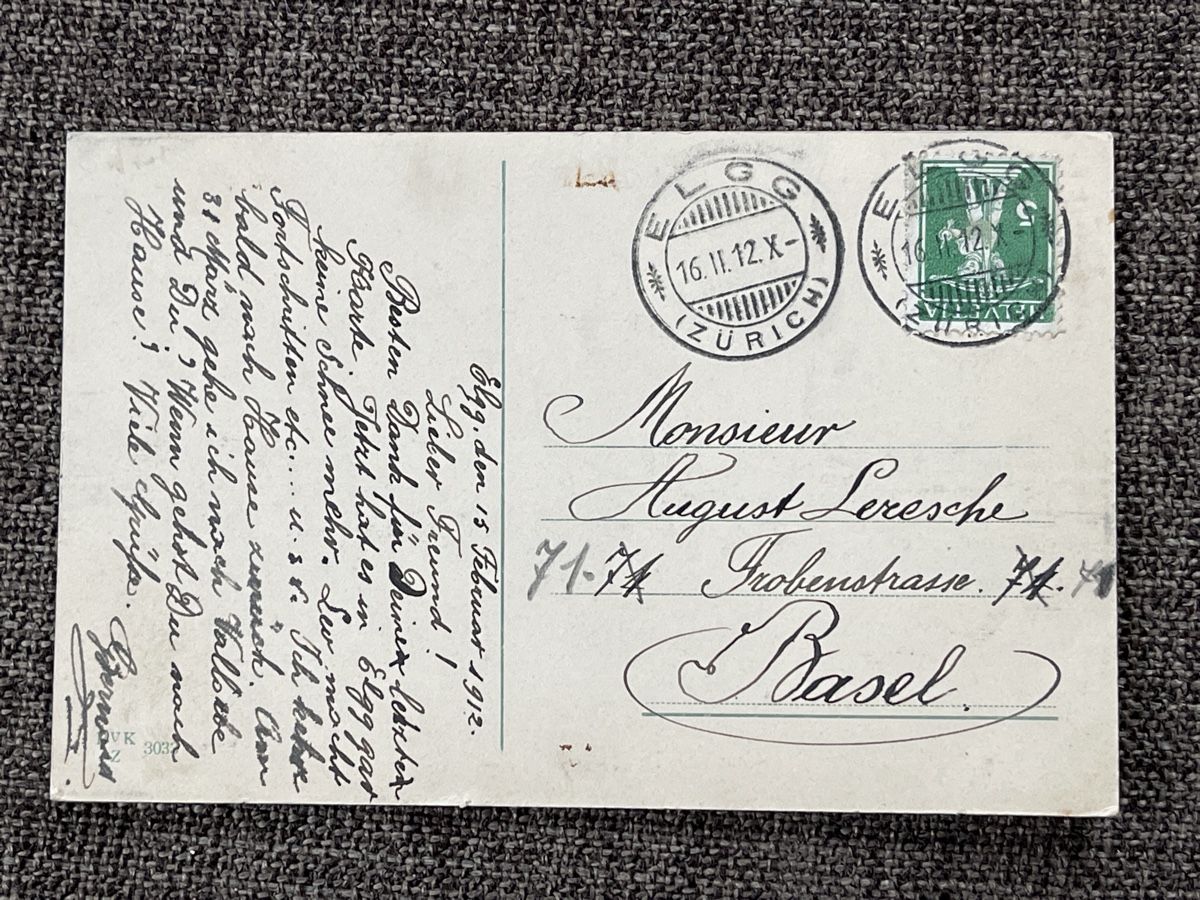 Elgg, den 15 Februar 1912.
Lieber Freund!
Besten Dank für Deinen letzten
Karte. Jetzt hat es in Elgg gar
keine Schnee mehr.
Fortschritten etc... u. s. w. Ich
bald nach Hause zurück. Am
31 März gehe ich nach Vallorbe
und Du? Wenn gehst Du nach
Hause? Viele Grüsse.
ELGG
16.II.12.X-
(ZÜRICH)
ELGG
16.II.12.X-
(ZÜRICH)
5
HELVETIA
Monsieur
August Leresche
71. 71 Frobenstrasse. 71. 71
Basel.
VK
Z 3037